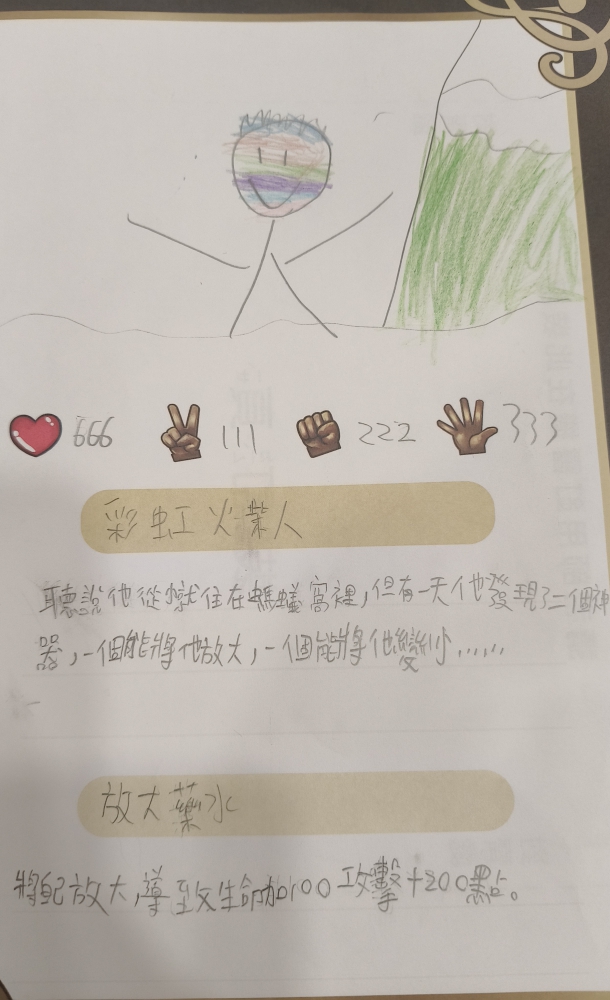 666 111 222 333
彩虹火柴人
聽說他從小就住在螞蟻窩裡,但有一天他發現了二個神
器,一個能將他放大,一個能將他變小......
放大藥水
將自己放大,導致生命加100攻擊+200點。